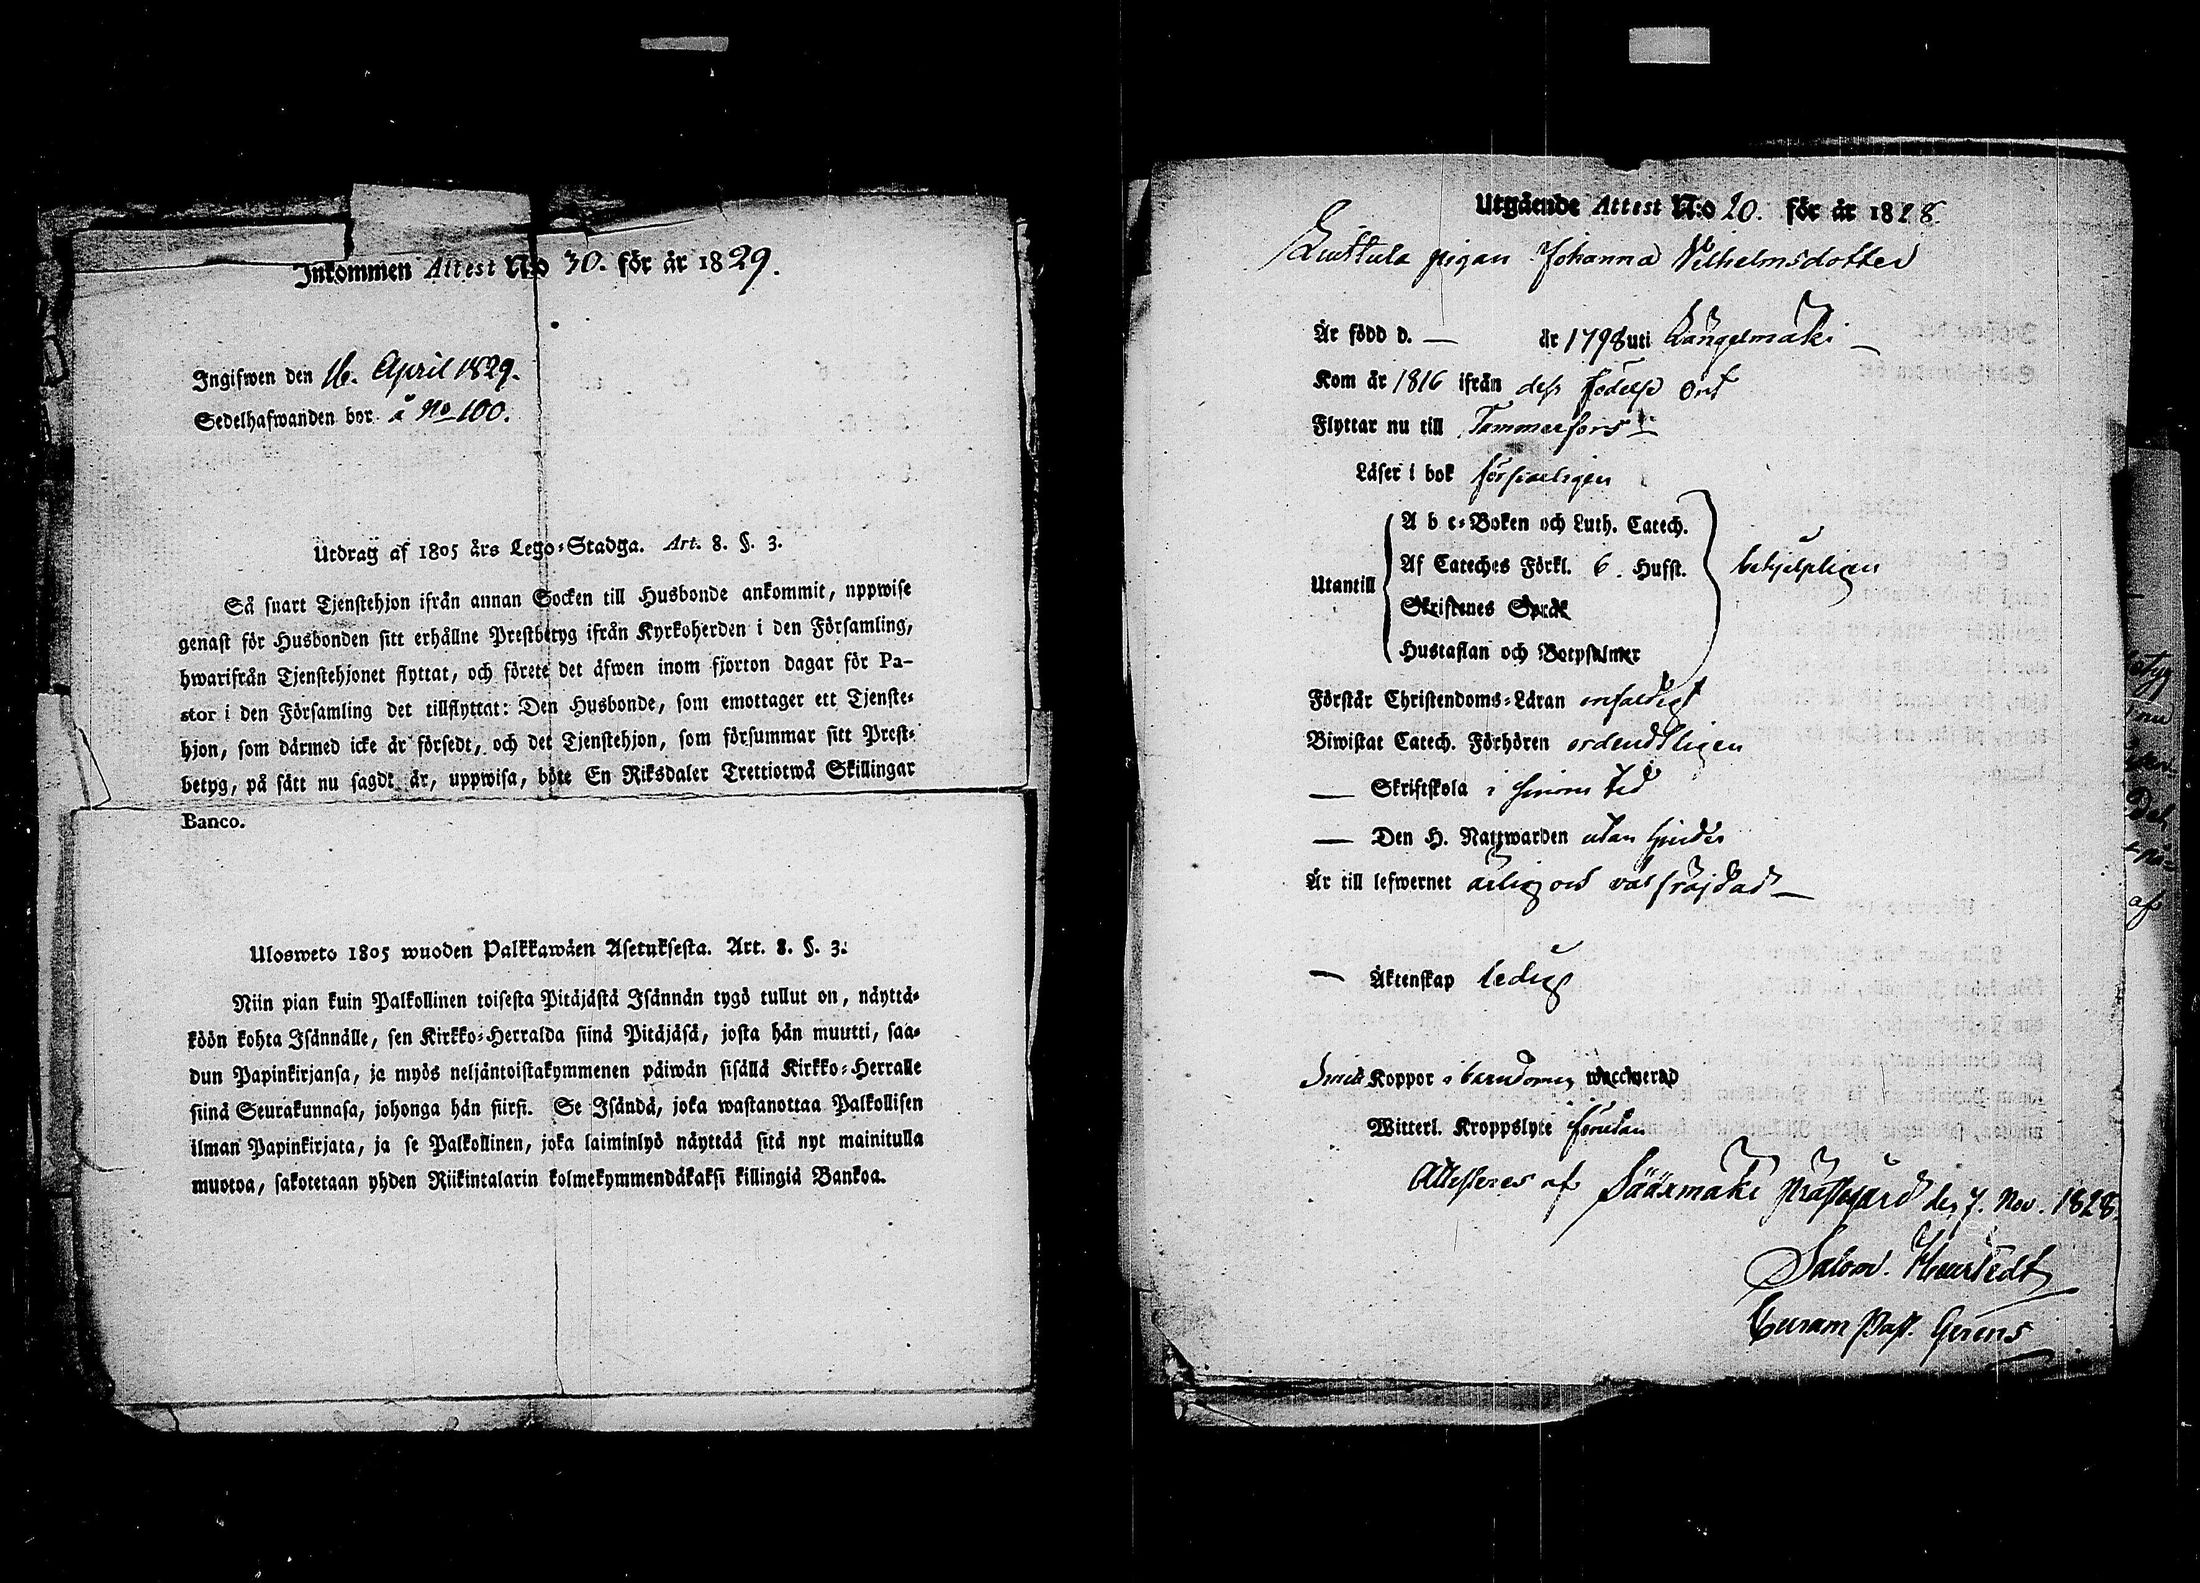 Inkommen Attest No 30. för år 1829.
Ingifwen den 16. April 1829.
Sedelhafwanden bor å No 100.
Utdrag af 1805 års Lego-Stadga. Art. 8. §. 3.
Så snart Tjenstehjon ifrån annan Socken till Husbonde ankommit, uppwise
genast för Husbonden sitt erhållne Prestbetyg ifrån Kyrkoherden i den Församling,
hwarifrån Tjenstehjonet flyttat, och förete det äfwen inom fjorton dagar för Pa-
stor i den Församling det tillflyttat: Den Husbonde, som emottager ett Tjenste-
hjon, som därmed icke är försedt, och det Tjenstehjon, som försummar sitt Prest-
betyg, på sätt nu sagdt är, uppwisa, böte En Riksdaler Trettiotwå Skillingar
Banco.
Ulosweto 1805 wuoden Palkkawäen Asetuksesta. Art. 8. §. 3.
Niin pian kuin Palkollinen toisesta Pitäjästä Isännän tygö tullut on, näyttä-
köön kohta Isännälle, sen Kirkko-Herralda siinä Pitäjäsä, josta hän muutti, saa-
dun Papinkirjansa, ja myös neljäntoistakymmenen päiwän sisällä Kirkko-Herralle
siinä Seurakunnasa, johonga hän siirsi. Se Isändä, joka wastanottaa Palkollisen
ilman Papinkirjata, ja se Palkollinen, joka laiminlyö näyttää sitä nyt mainitulla
muotoa, sakotetaan yhden Riikintalarin kolmekymmendäkaksi killingiä Bankoa.
Utgående Attest N:o 20. för år 1828.
pigan Johanna Wilhelmsdotter
Är född d. — år 1798 uti Längelmäki —
Kom år 1816 ifrån dess födelse Ort
Flyttar nu till Tammerfors —
Läser i bok försvarligen
A b c-Boken och Luth. Catech.
Af Cateches Förkl. 6. Husst.
Utantill
behjelpligen
Skriftenes Språk
Hustaflan och Botpsalmer
Förstår Christendoms-Läran enfaldigt
Biwistat Catech. Förhören ordendtligen
— Skriftskola i sinom tid
— Den H. Nattwarden utan hinder
Är till lefwernet ärlig och väl fräjdad —
— Äktenskap ledig
Koppor i barndomen waccinerad
Witterl. Kroppslyte förutan
Attesteres af Sääxmäki Prästegård den 7. Nov. 1828.
Salom.
Curam Past. Gerens